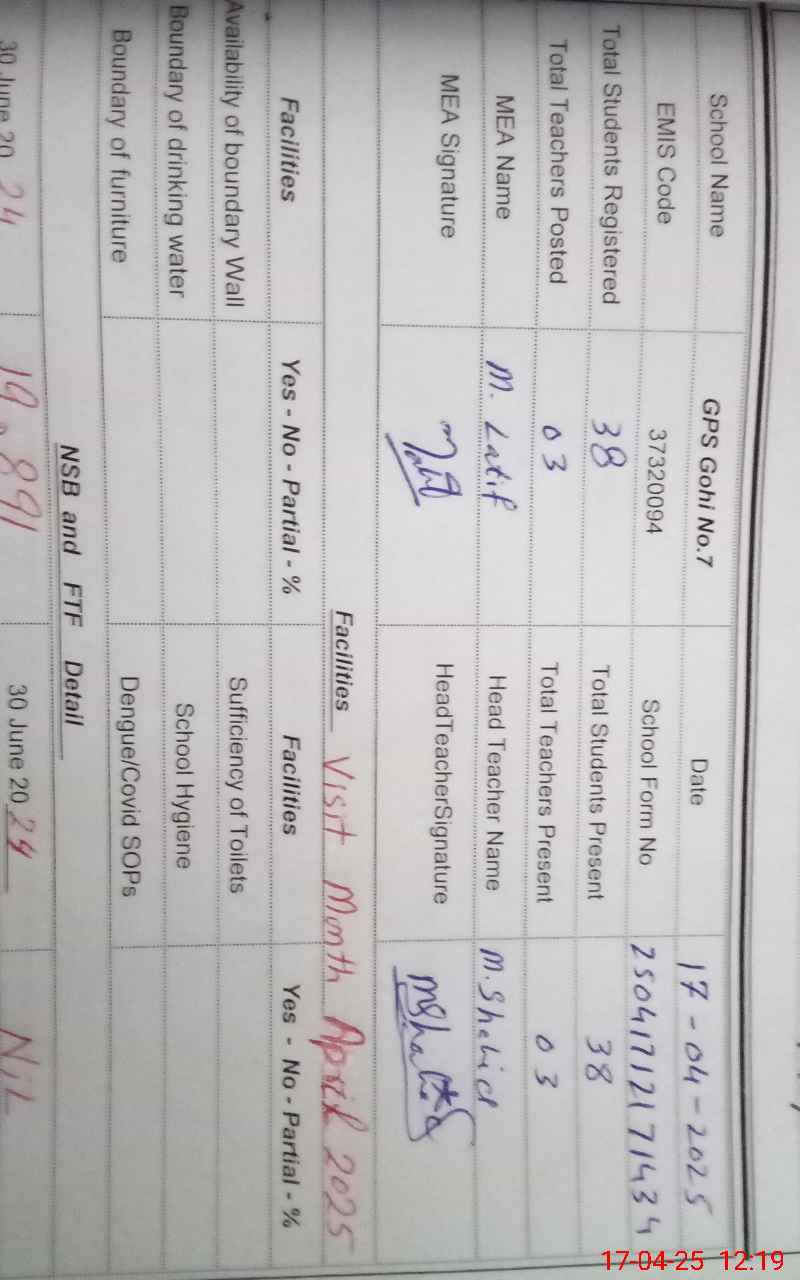 School Name GPS Gohi No.7 Date 17-04-2025
EMIS Code 37320094 School Form No 250417121 71434
Total Students Registered 38 Total Students Present 38
Total Teachers Posted 03 Total Teachers Present 03
MEA Name M. Latif Head Teacher Name M. Shahid
MEA Signature HeadTeacherSignature
Facilities Visit Month April 2025
Facilities Yes - No - Partial - % Facilities Yes - No - Partial - %
Availability of boundary Wall Sufficiency of Toilets
Boundary of drinking water School Hygiene
Boundary of furniture Dengue/Covid SOPs
NSB and FTF Detail
30 June 20 24 19,891 30 June 20 24 Nil
17-04-25 12:19